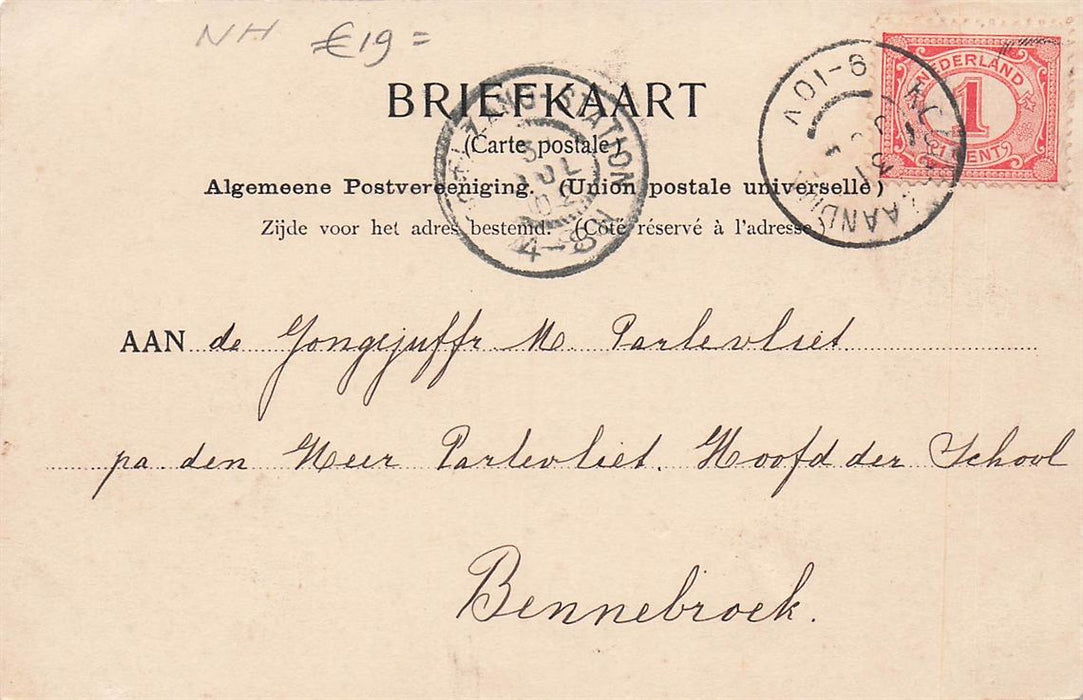 NH €19=
BRIEFKAART
(Carte postale)
Algemeene Postvereeniging. (Union postale universelle)
Zijde voor het adres bestemd. (Côté réservé à l'adresse
NEDERLAND
1
CENT
STATION
4-8N
9-10V
31
AAN de Jongejuffr M. Parlevliet
pa. den Heer Parlevliet. Hoofd der School
Bennebroek.